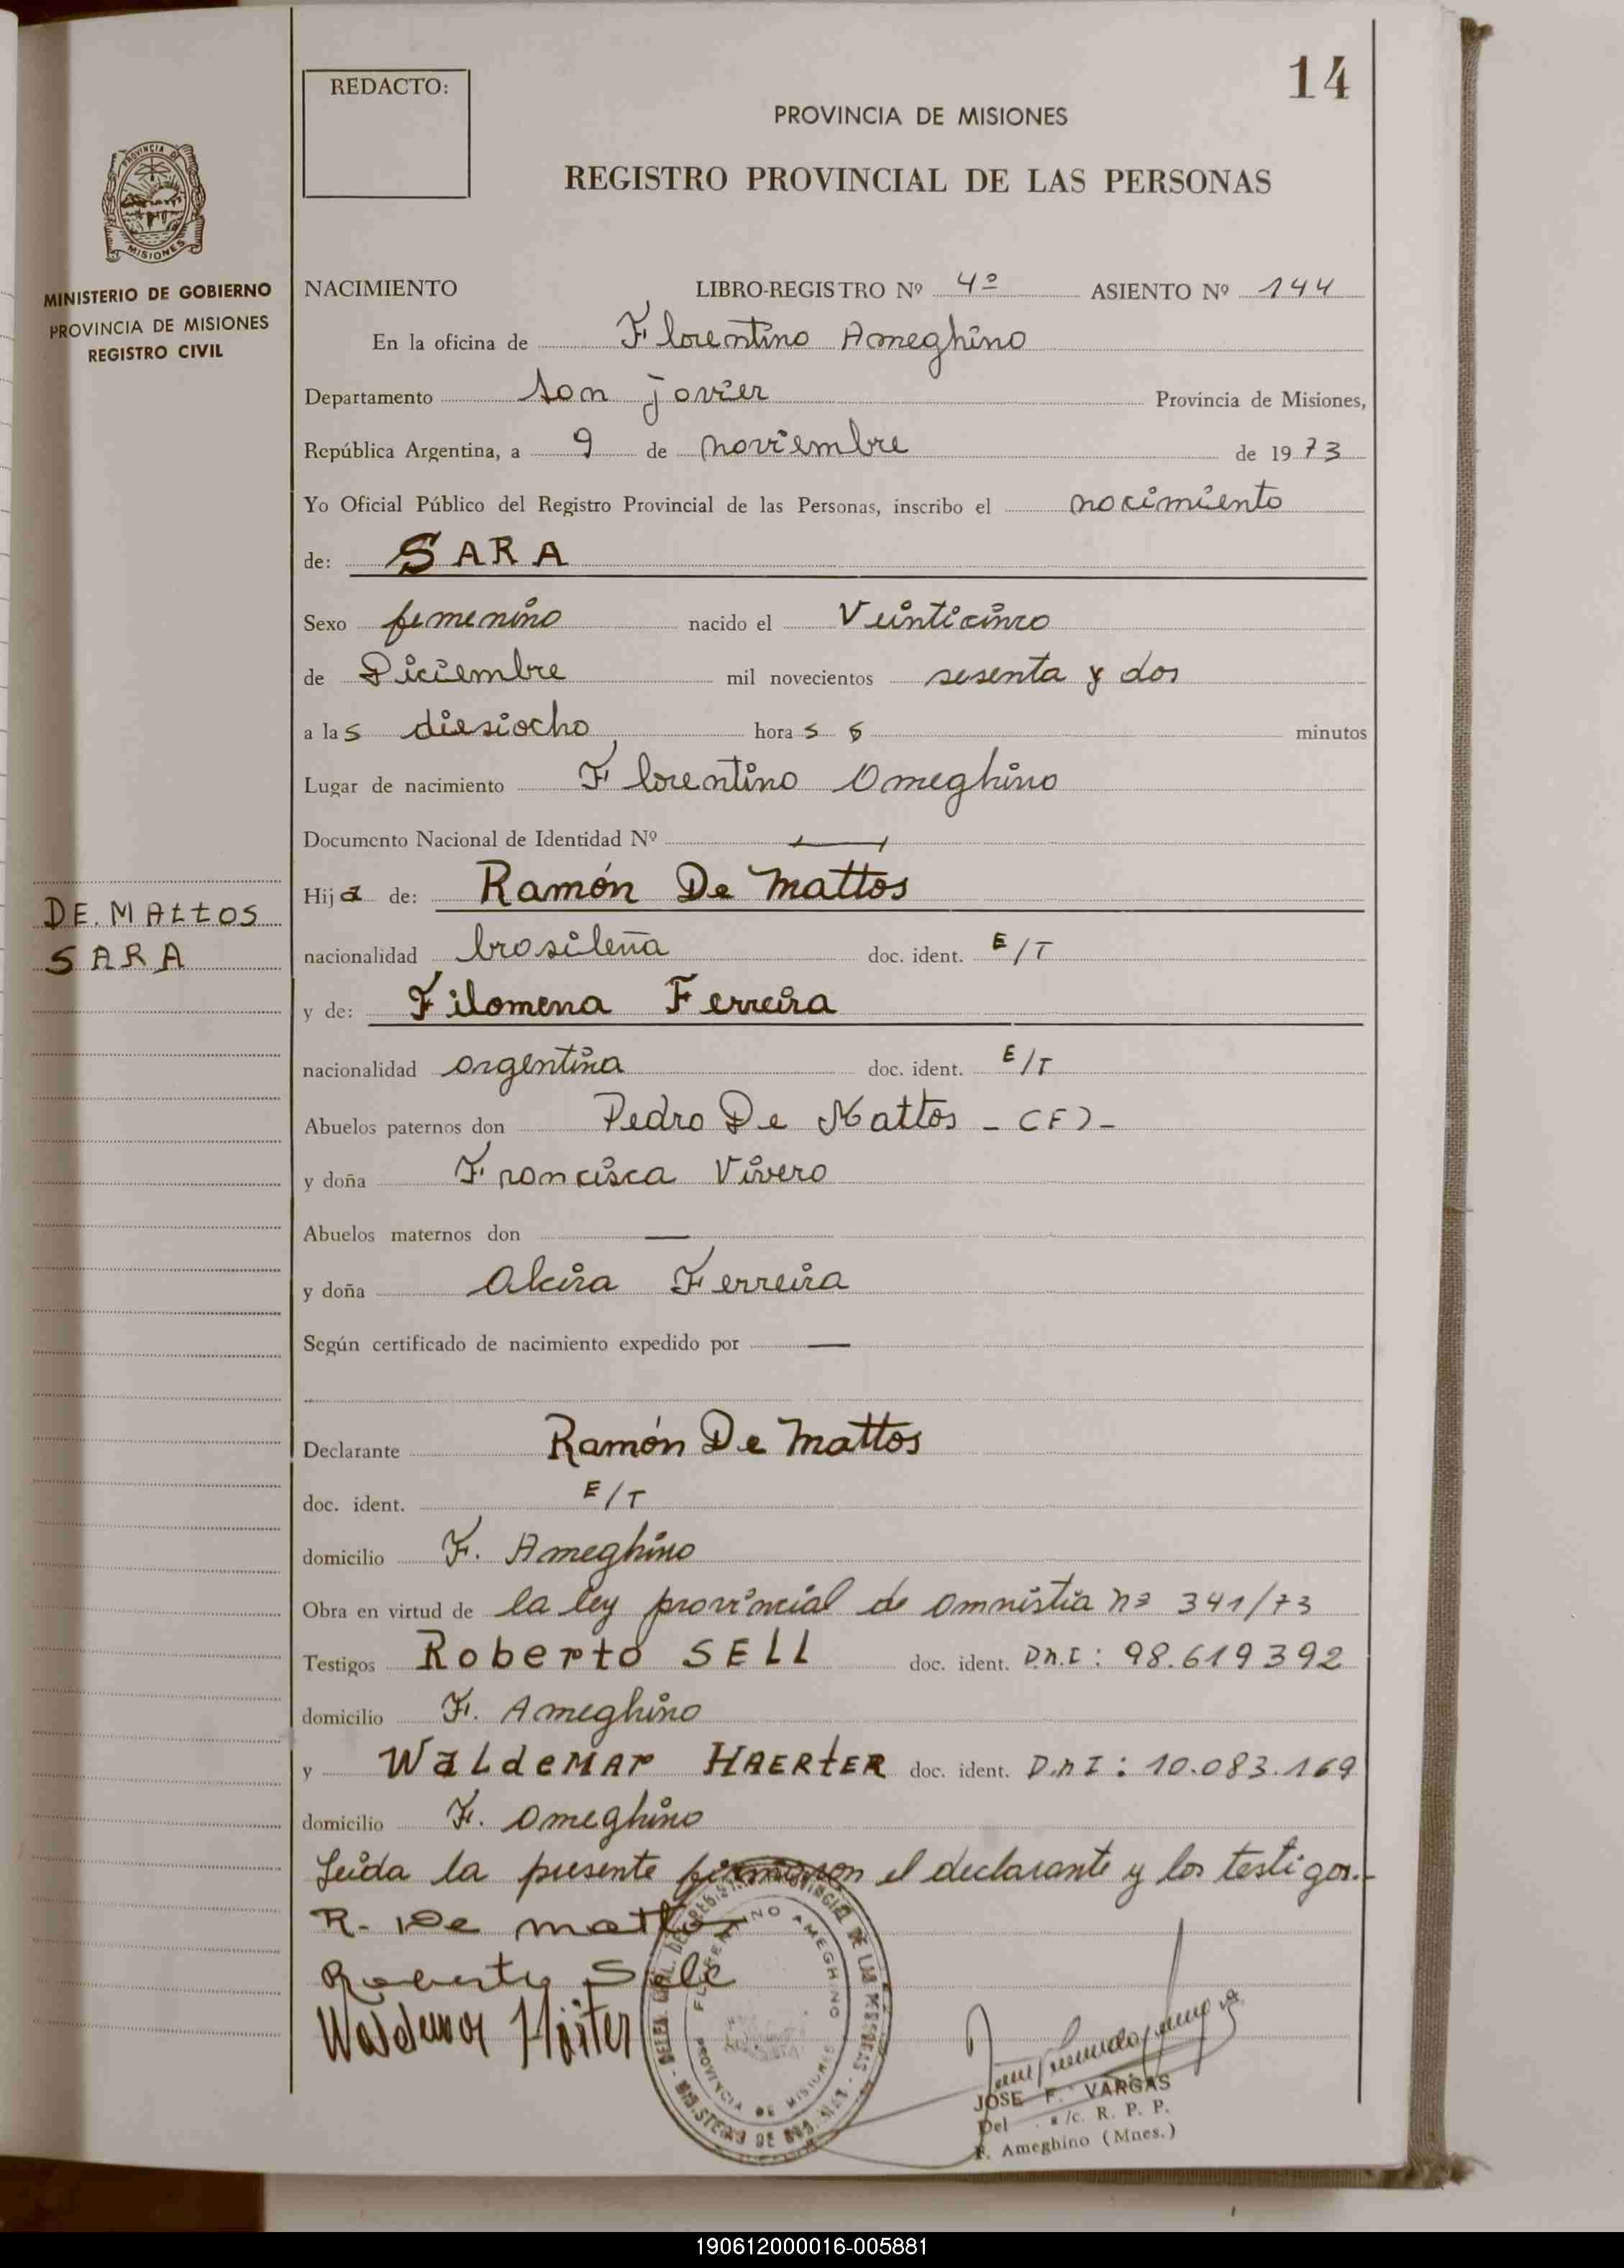 14
REDACTO:
PROVINCIA DE MISIONES
REGISTRO PROVINCIAL DE LAS PERSONAS
PROVINCIA DE
MISIONES
MINISTERIO DE GOBIERNO
PROVINCIA DE MISIONES
REGISTRO CIVIL
NACIMIENTO LIBRO-REGISTRO Nº 4º ASIENTO Nº 144
En la oficina de Florentino Ameghino
Departamento San Javier Provincia de Misiones,
República Argentina, a 9 de noviembre de 1973
Yo Oficial Público del Registro Provincial de las Personas, inscribo el nacimiento
de: SARA
Sexo femenino nacido el Veinticinco
de Diciembre mil novecientos sesenta y dos
a las diesiocho horas minutos
Lugar de nacimiento Florentino Ameghino
Documento Nacional de Identidad Nº —
Hija de: Ramón De Mattos
DE. MATTOS
SARA
nacionalidad brasileña doc. ident. E/T
y de: Filomena Ferreira
nacionalidad argentina doc. ident. E/T
Abuelos paternos don Pedro De Mattos - (F) -
y doña Francisca Vivero
Abuelos maternos don —
y doña Alcira Ferreira
Según certificado de nacimiento expedido por —
Declarante Ramón De Mattos
doc. ident. E/T
domicilio F. Ameghino
Obra en virtud de la ley provincial de amnistia nº 341/73
Testigos Roberto SELL doc. ident. D.n.I: 98.619392
domicilio F. Ameghino
y WALDEMAR HAERTER doc. ident. D.n I: 10.083.169
domicilio F. Ameghino
Leida la presente firmaron el declarante y los testigos.-
R. De matto
Roberto Sell
Waldemar Härter
FLORENTINO AMEGHINO
PROVINCIA DE MISIONES
JOSE F. VARGAS
Del a/c. R. P. P.
F. Ameghino (Mnes.)
190612000016-005881